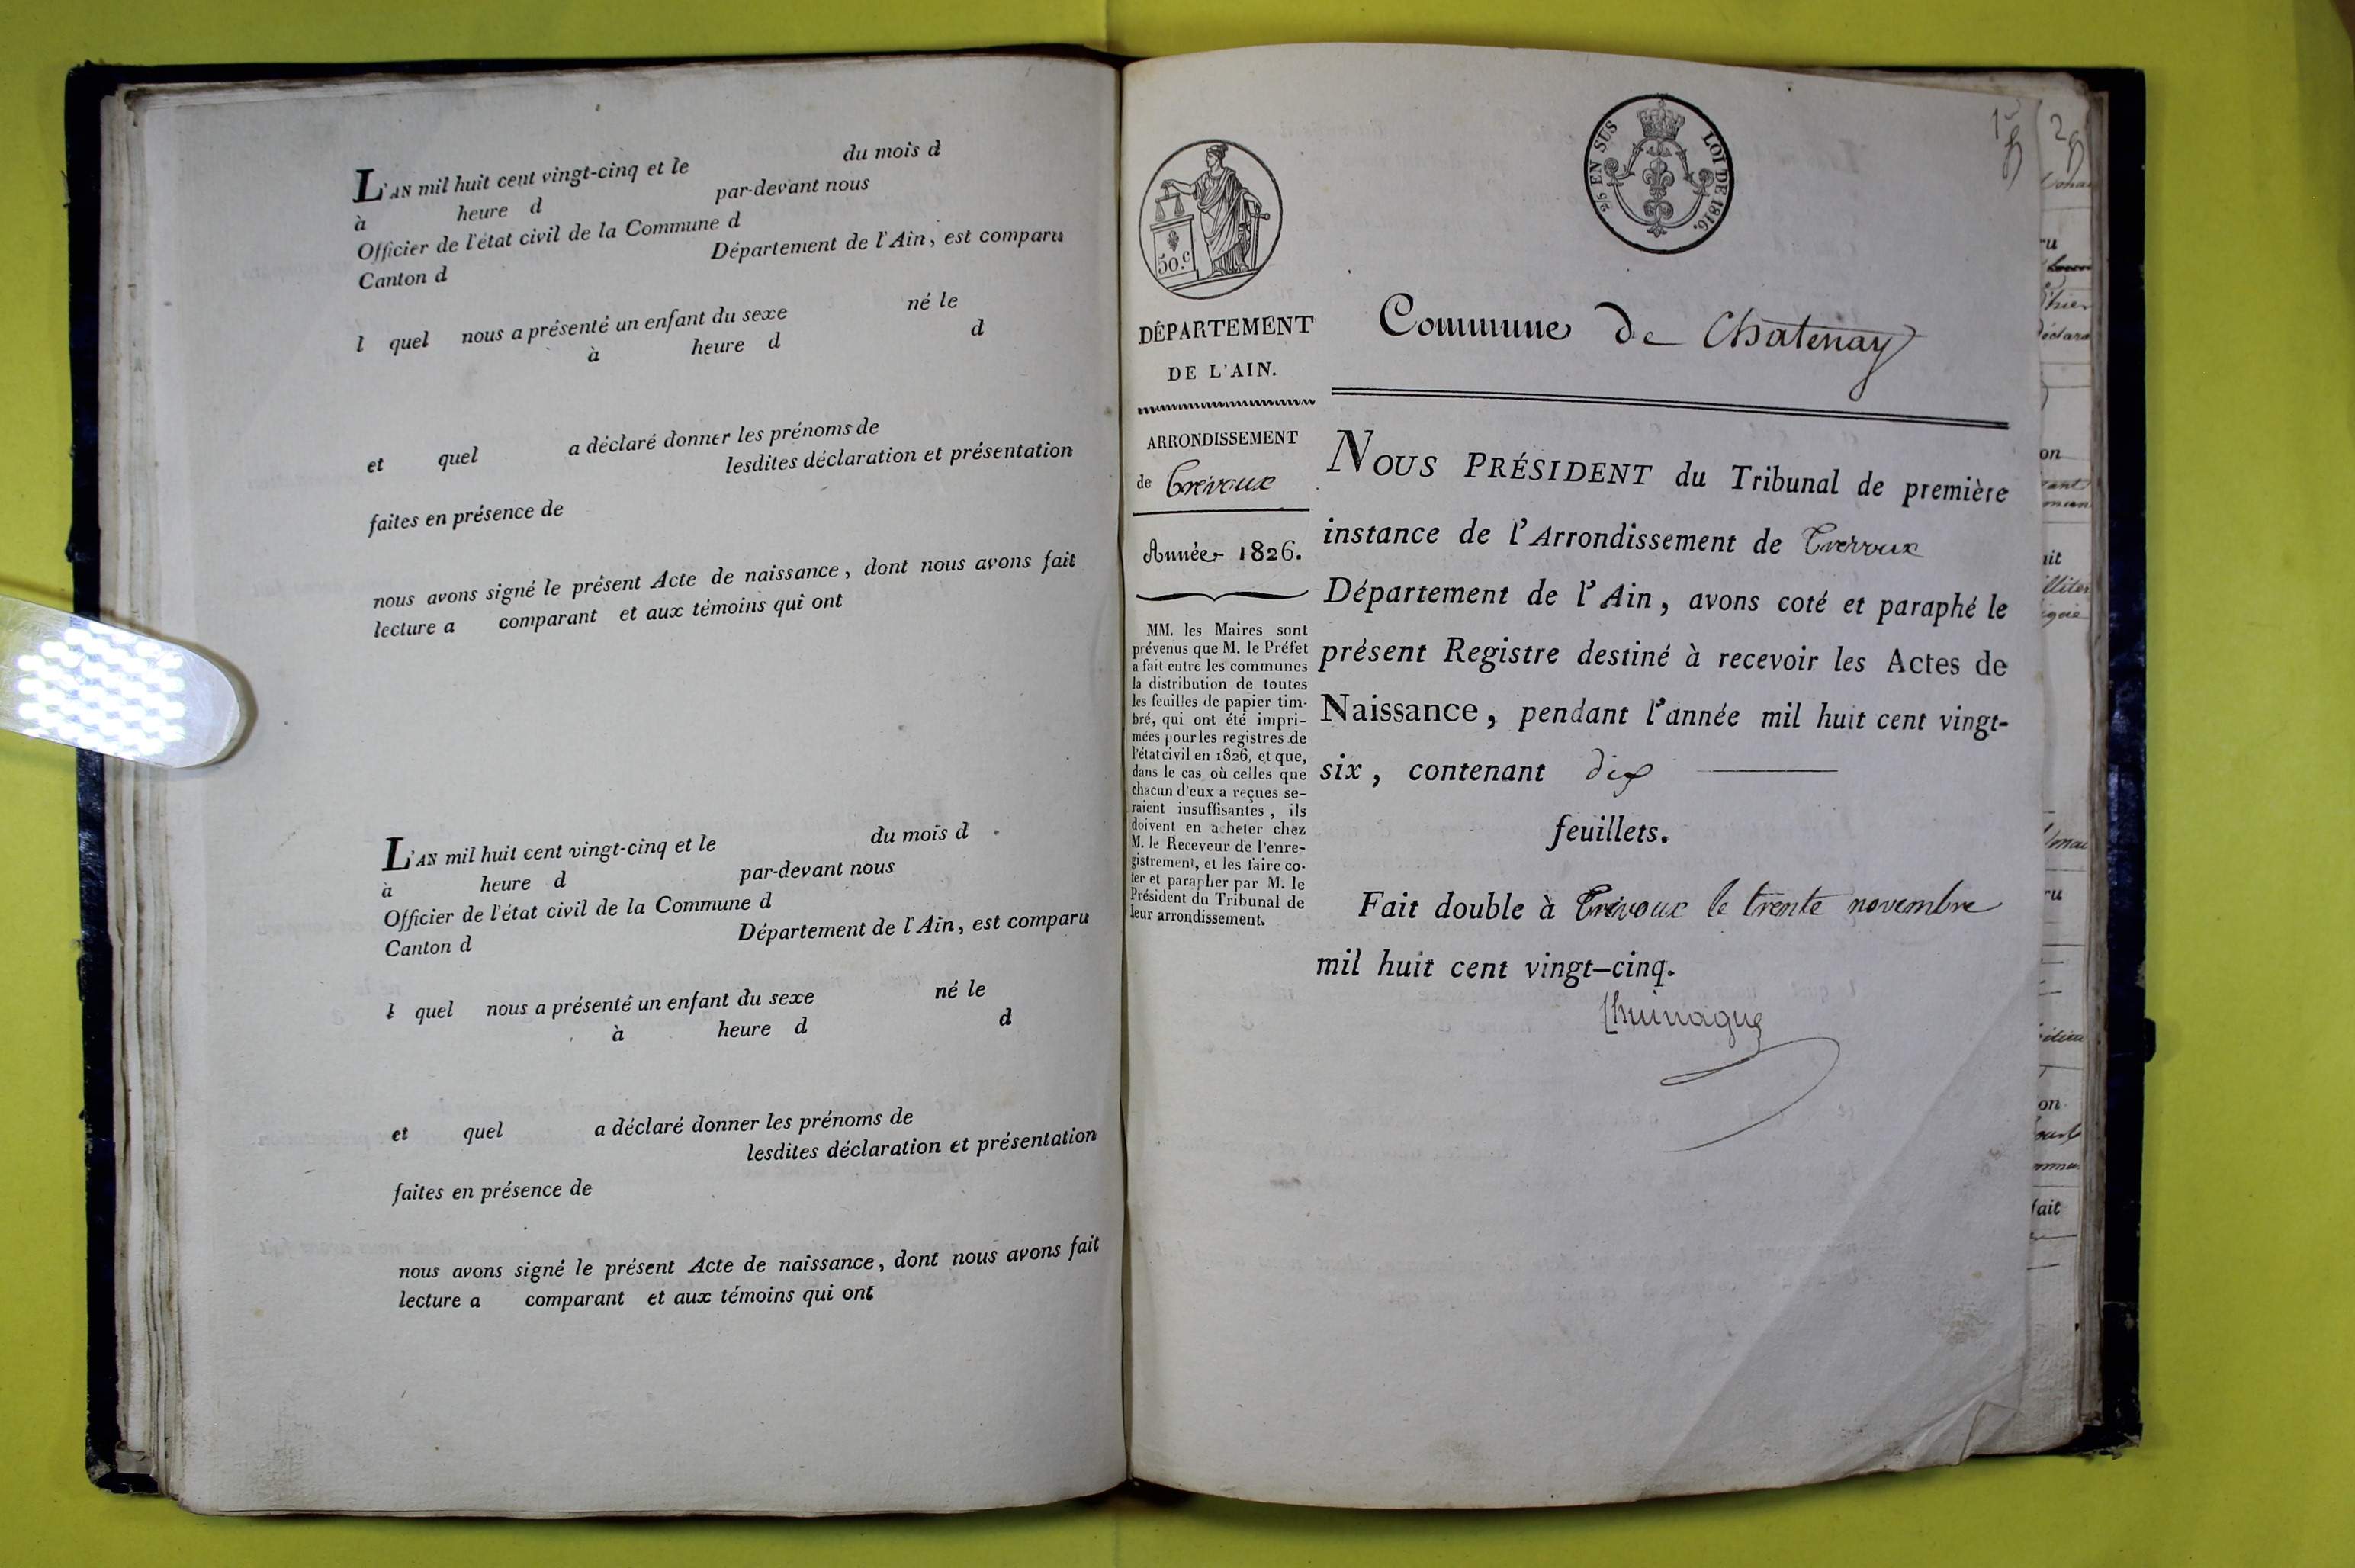 L'AN mil huit cent vingt-cinq et le du mois d
à heure d par-devant nous
Officier de l'état civil de la Commune d
Canton d Département de l'Ain, est comparu
l quel nous a présenté un enfant du sexe né le
à heure d d
et quel a déclaré donner les prénoms de
lesdites déclaration et présentation
faites en présence de
nous avons signé le présent Acte de naissance, dont nous avons fait
lecture a comparant et aux témoins qui ont
L'AN mil huit cent vingt-cinq et le du mois d
à heure d par-devant nous
Officier de l'état civil de la Commune d
Canton d Département de l'Ain, est comparu
l quel nous a présenté un enfant du sexe né le
à heure d d
et quel a déclaré donner les prénoms de
lesdites déclaration et présentation
faites en présence de
nous avons signé le présent Acte de naissance, dont nous avons fait
lecture a comparant et aux témoins qui ont
50.c
EN SUS
LOI DE 1816.
1
2
DÉPARTEMENT
DE L'AIN.
ARRONDISSEMENT
de Trévoux
Année 1826.
MM. les Maires sont
prévenus que M. le Préfet
a fait entre les communes
la distribution de toutes
les feuilles de papier tim-
bré, qui ont été impri-
mées pour les registres de
l'état civil en 1826, et que,
dans le cas où celles que
chacun d'eux a reçues se-
raient insuffisantes, ils
doivent en acheter chez
M. le Receveur de l'enre-
gistrement, et les faire co-
ter et parapher par M. le
Président du Tribunal de
leur arrondissement.
Commune de Chatenay
NOUS PRÉSIDENT du Tribunal de première
instance de l'Arrondissement de Trevoux
Département de l'Ain, avons coté et paraphé le
présent Registre destiné à recevoir les Actes de
Naissance, pendant l'année mil huit cent vingt-
six, contenant dix
feuillets.
Fait double à Trévoux le trente novembre
mil huit cent vingt-cinq.